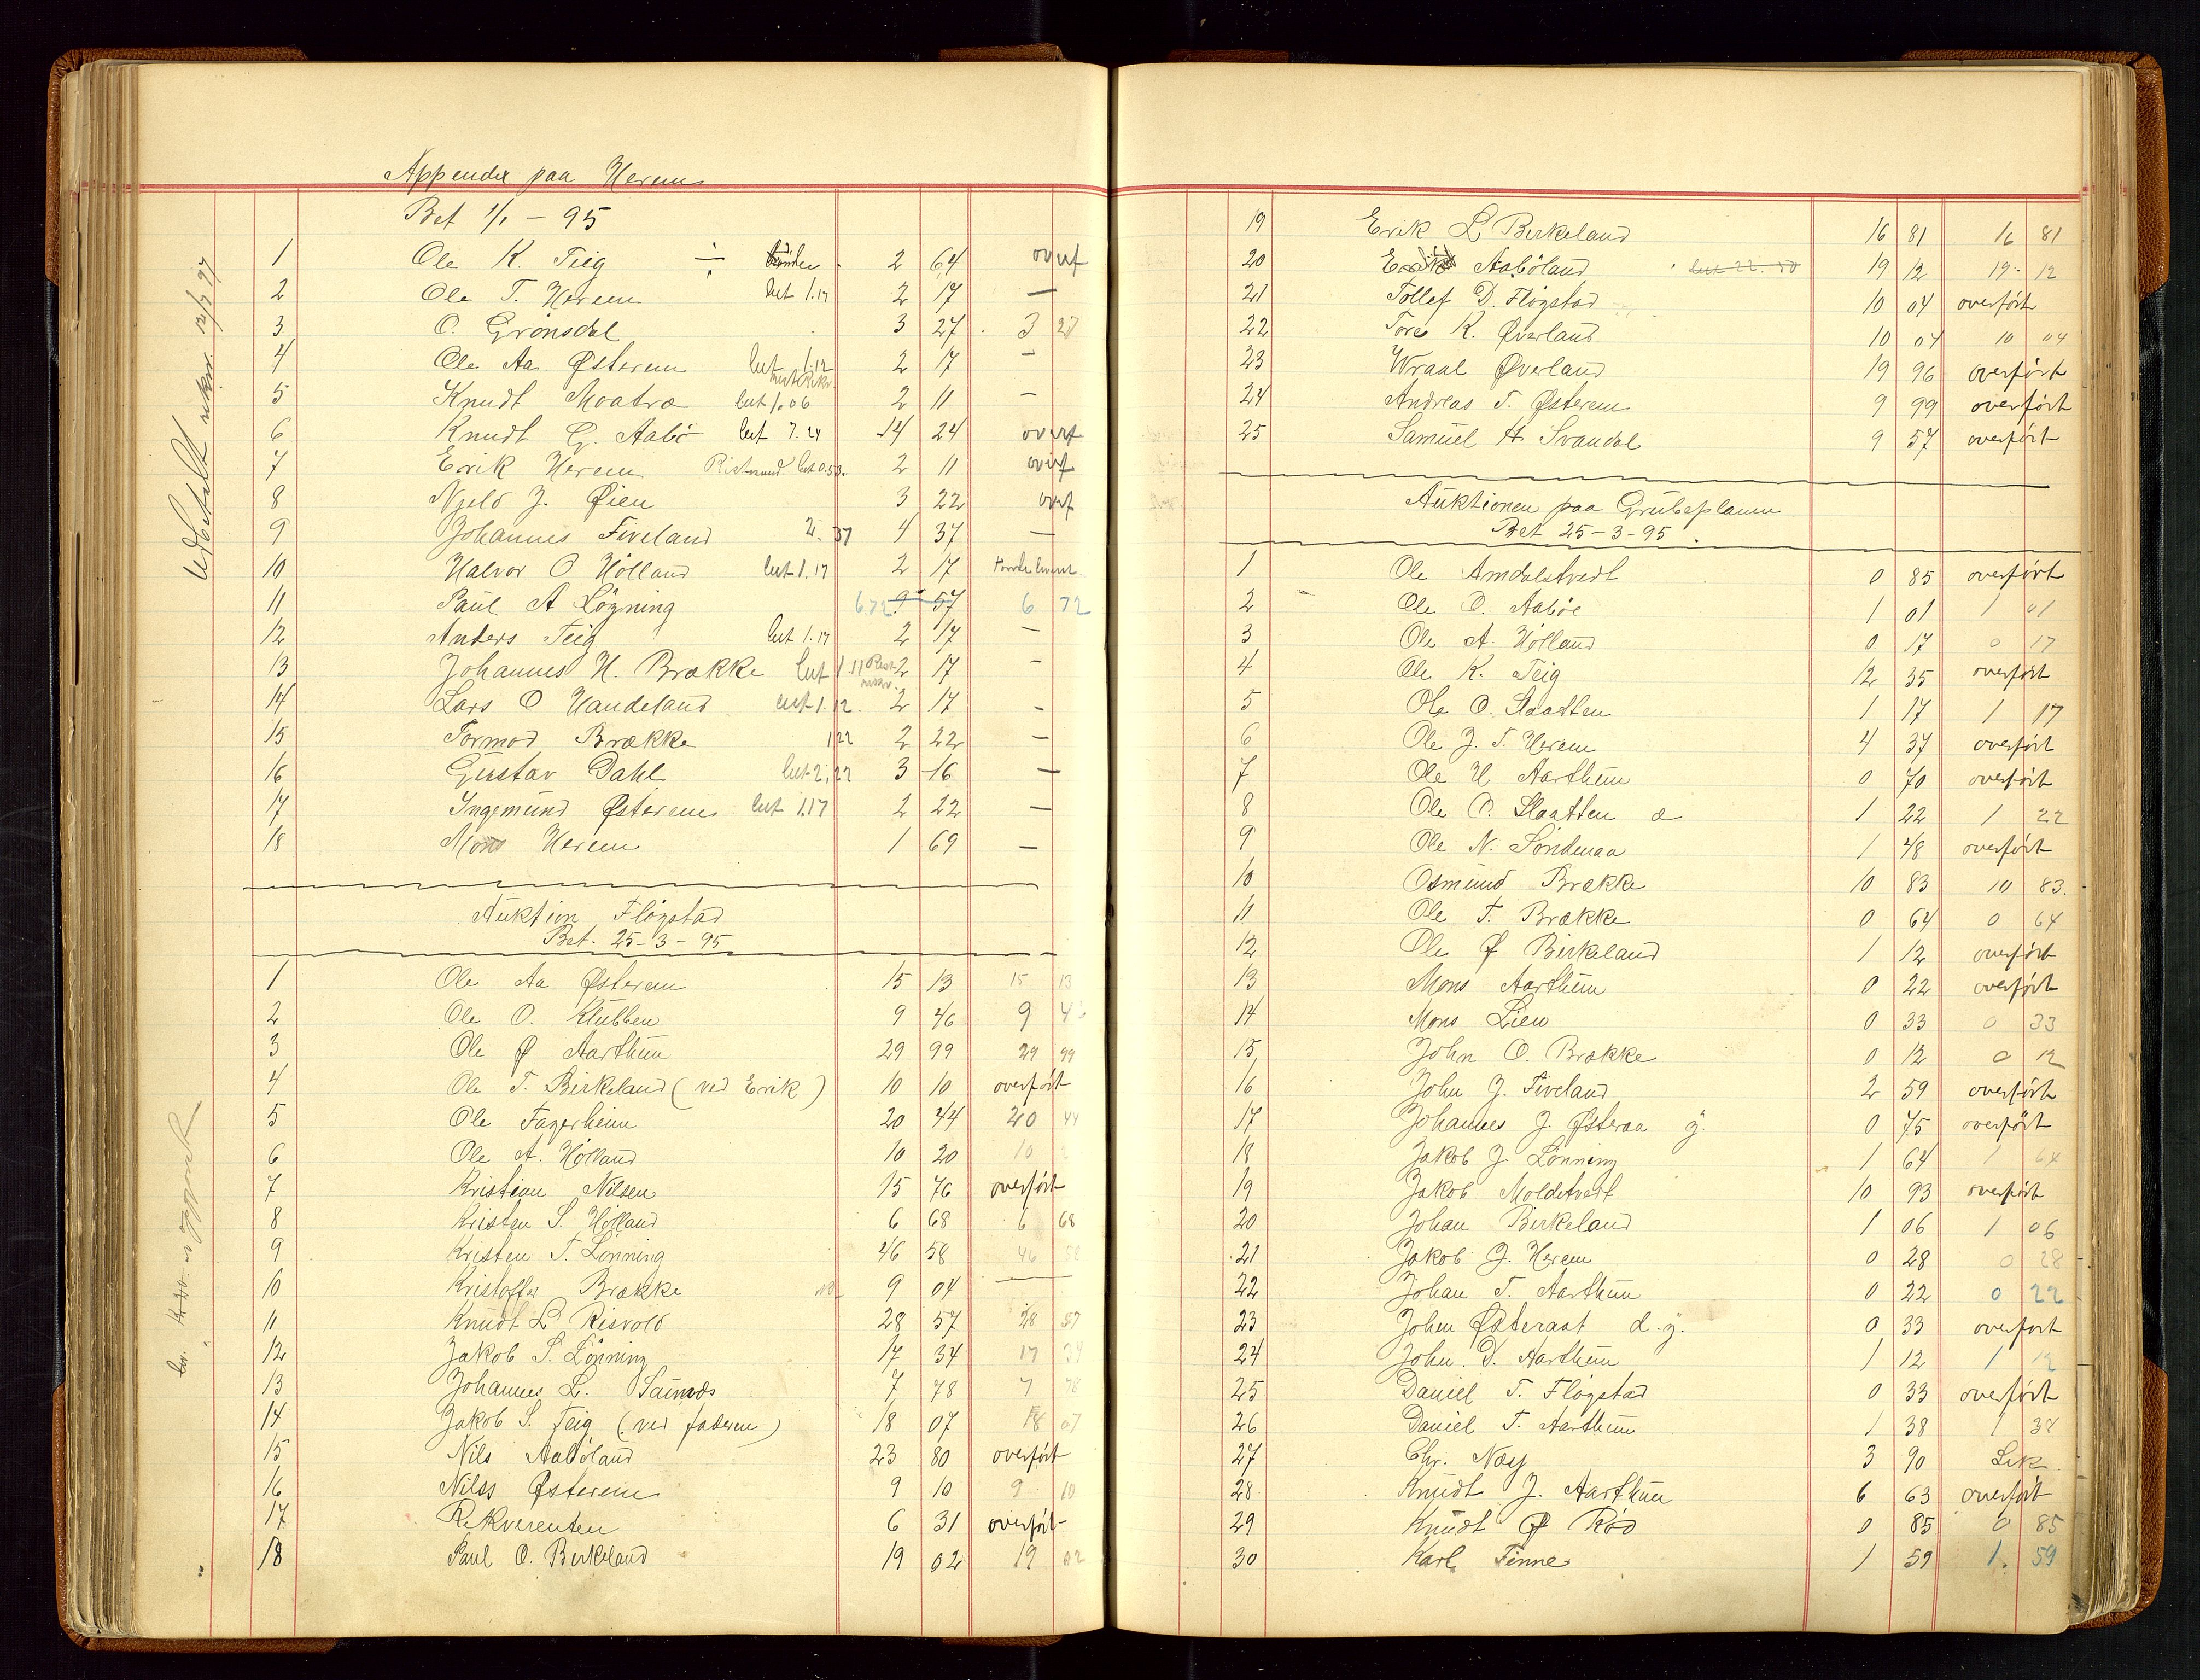 Appendix paa Herem
Bet 1/1 - 95
1 Ole K. Teig 2 64 overf
2 Ole T. Herem bet 1.17 2 17 —
3 O. Grönsdal 3 27 3 27
4 Ole Aa. Østerem bet 1.12 2 17 —
5 Knudt Moatræ bet 1.06 2 11 —
6 Knudt G. Aabö bet 7.24 14 24 overf
7 Erik Herem bet 0.53. 2 11 overf
8 Njeld J. Øien 3 22 overf
9 Johannes Fiveland 2.37 4 37 —
10 Halvor O Hölland bet 1.17 2 17
11 Paul A Lögning 6.72 9 57 6 72
12 Anders Teig bet 1.17 2 17 —
13 Johannes H. Brække bet 1.11 2 17 —
14 Lars O Handeland bet 1.12. 2 17 —
15 Tormod Brække 1 22 2 22 —
16 Gustav Dahl bet 2,22 3 16 —
17 Ingemund Østerem bet 1.17 2 22 —
18 Mons Herem 1 69 —
Auktion Flögstad
Bet. 25-3-95
1 Ole Aa Østerem 15 13 15 13
2 Ole O. Klubben 9 46 9 46
3 Ole Ø Aarthun 29 99 29 99
4 Ole T. Birkeland (ved Erik) 10 10 overfört
5 Ole Fagerheim 20 44 20 44
6 Ole A. Hölland 10 20 10
7 Kristian Nilsen 15 76 overfört
8 Kristen S. Hölland 6 68 6 68
9 Kristen T. Lönning 46 58 46 58
10 Kristoffer Brække 9 04 —
11 Knudt L Risvold 28 57 28 57
12 Jakob S. Lönning 17 34 17 34
13 Johannes L. Saunæs 7 78 7 78
14 Jakob S. Teig (ved faderen) 18 07 18 07
15 Nils Aaböland 23 80 overfört
16 Nilss Østerem 9 10 9 10
17 Rekvirenten 6 31 overfört
18 Paul O. Berkeland 19 02 19 02
19 Erik L Berkeland 16 81 16 81
20 Erik Aaböland bet 22.50 19 12 19 12
21 Tollef D. Flögstad 10 04 overfört
22 Tore K. Øverland 10 04 10 04
23 Wraal Øverland 19 96 overfört
24 Andreas T. Østerem 9 99 overfört
25 Samuel H. Svandal 9 57 overfört
Auktionen paa Grubeplanen
Bet 25-3-95.
1 Ole Amdalstvedt 0 85 overfört
2 Ole O. Aaböe 1 01 1 01
3 Ole A. Hölland 0 17 0 17
4 Ole K. Teig 12 35 overfört
5 Ole O. Slaatten 1 17 1 17
6 Ole J. T. Herem 4 37 overfört
7 Ole H. Aarthun 0 70 overfört
8 Ole O. Slaatten æ 1 22 1 22
9 Ole N. Söndenaa 1 48 overfört
10 Osmund Brække 10 83 10 83.
11 Ole T. Brække 0 64 0 64
12 Ole Ø Birkeland 1 12 overfört
13 Mons Aarthun 0 22 overfört
14 Mons Lien 0 33 0 33
15 John O. Brække 0 12 0 12
16 John J. Fiveland 2 59 overfört
17 Johannes J. Østeraa y. 0 75 overfört
18 Jakob J. Lönning 1 64 1 64
19 Jakob Moldetvedt 10 93 overfört
20 Johan Birkeland 1 06 1 06
21 Jakob J. Herem 0 28 0 28
22 Johan T. Aarthun 0 22 0 22
23 John Østeraat d.y. 0 33 overfort
24 John D. Aarthun 1 12 1 12
25 Daniel T. Flögstad 0 33 overfört
26 Daniel T. Aarthun 1 38 1 38
27 Chr. Næs 3 90
28 Knudt J. Aarthun 6 63 overfört
29 Knudt Ø Röd 0 85 0 85
30 Karl Finne 1 59 1. 59